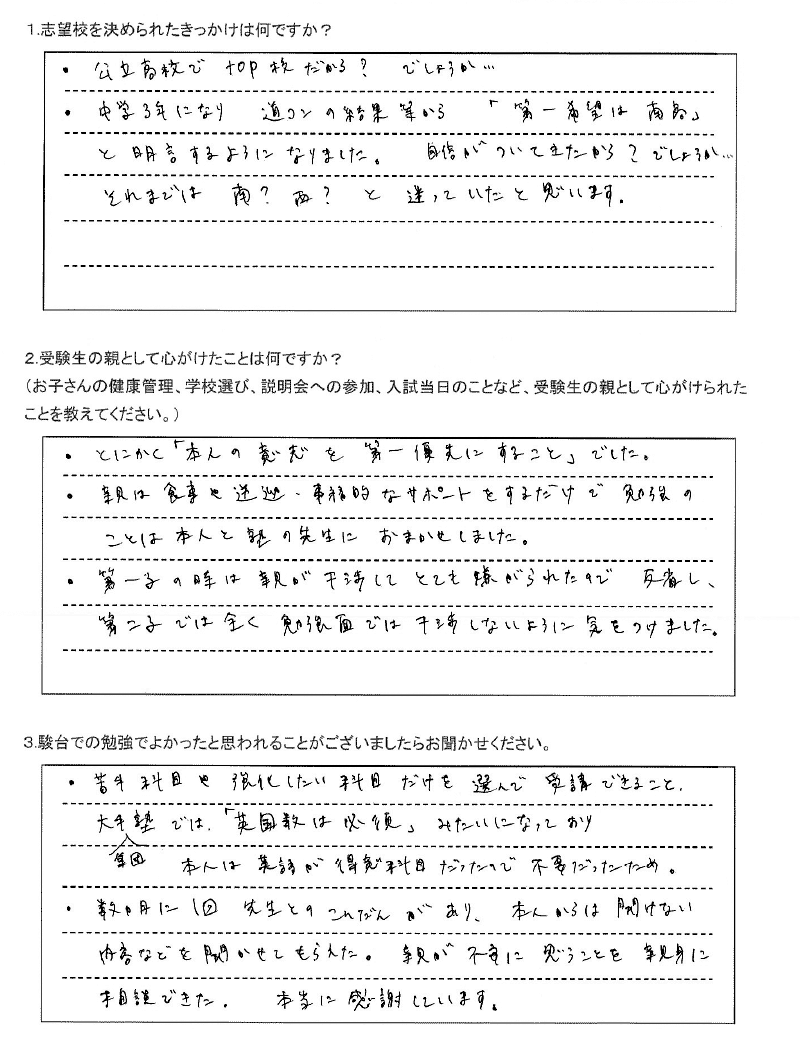 1.志望校を決められたきっかけは何ですか？
・公立高校で top校だから？ でしょうか…
・中学3年になり 道コンの結果等から 「第一希望は南高」
と明言するようになりました。 自信がついてきたから？でしょうか…
それまでは 南？ 西？ と 迷っていたと思います。
2.受験生の親として心がけたことは何ですか？
（お子さんの健康管理、学校選び、説明会への参加、入試当日のことなど、受験生の親として心がけられた
ことを教えてください。）
・とにかく「本人の意志を 第一優先にすること」でした。
・親は食事や送迎・事務的なサポートをするだけで 勉強の
ことは本人と塾の先生に おまかせしました。
・第一子の時は親が干渉して とても嫌がられたので 反省し、
第二子では全く 勉強面では干渉しないように気をつけました。
3.駿台での勉強でよかったと思われることがございましたらお聞かせください。
・苦手科目や強化したい科目だけを選んで受講できること。
大手塾では、「英国数は必須」みたいになっており
集団 本人は英語が得意科目だったので不要だったため。
・数ヶ月に1回 先生とのこんだんがあり、本人からは聞けない
内容などを聞かせてもらえた。 親が不安に思うことを親身に
相談できた。 本当に感謝しています。